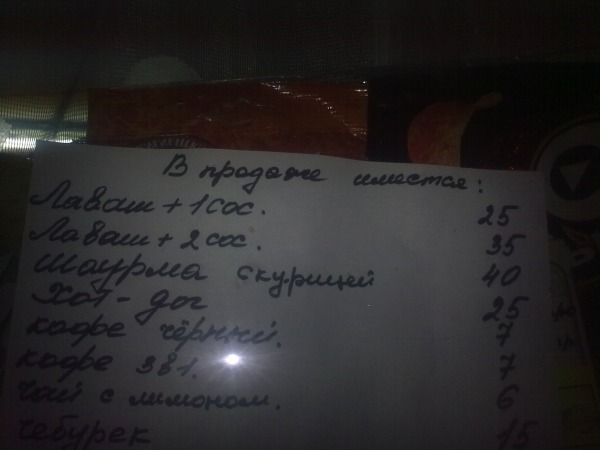 В продаже имеется:
Лаваш + 1 сос. 25
Лаваш + 2 сос. 35
Шаурма с курицей 40
Хот-дог 25
кофе чёрный. 7
кофе 3в1. 7
чай с лимоном. 6
чебурек 15